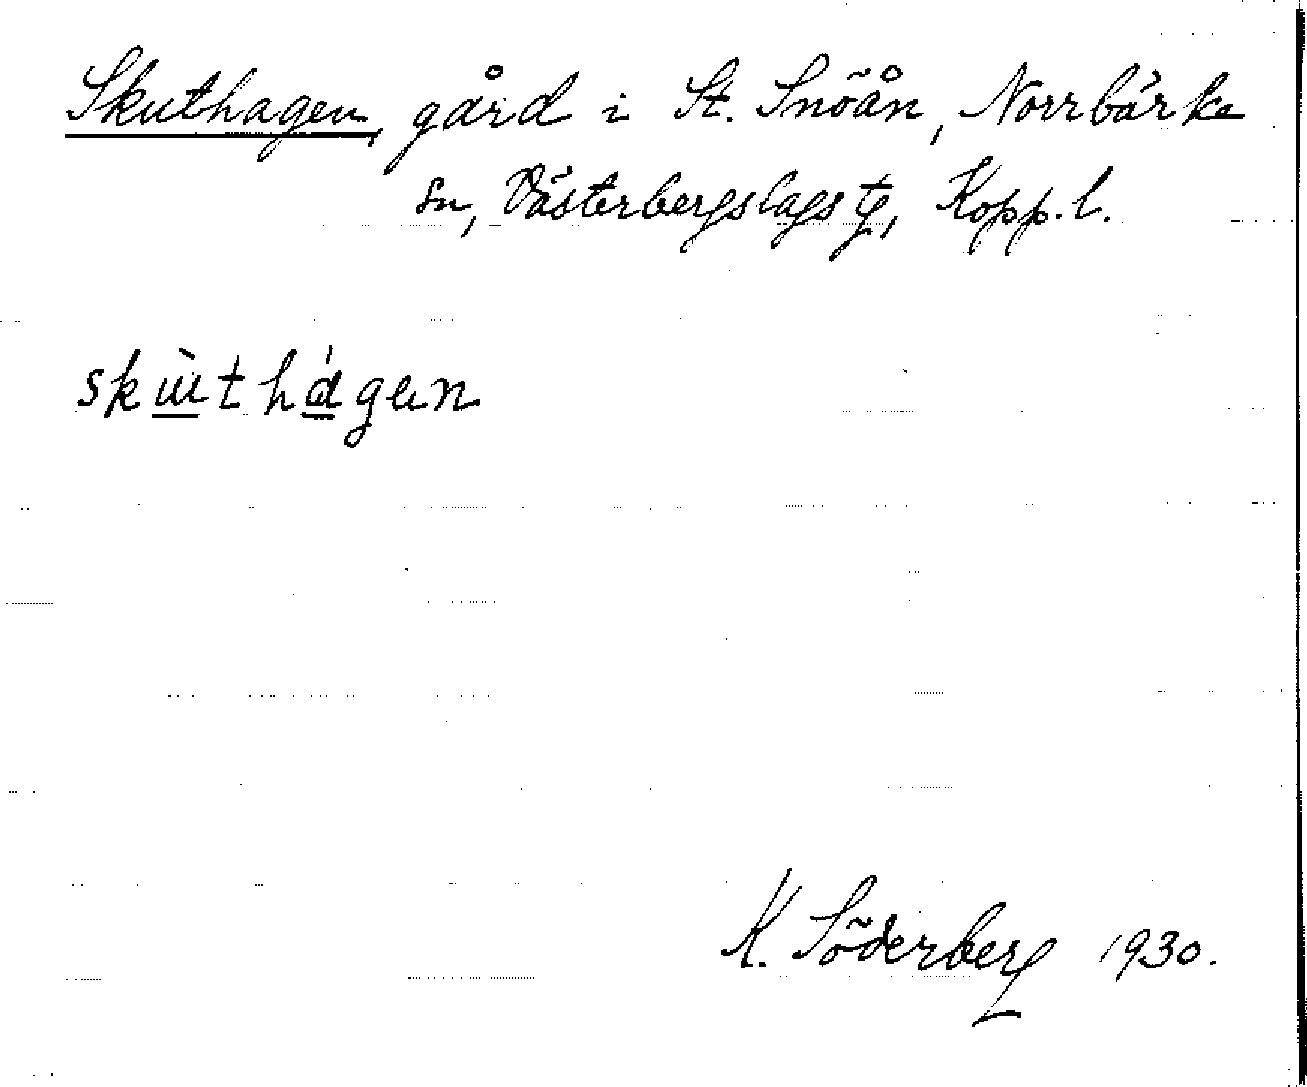 Skuthagen, gård i St. Snöån, Norrbärke
sn, Västerbergslags tg, Kopp. l.
skɯ̀thágɐn
K. Söderberg 1930.